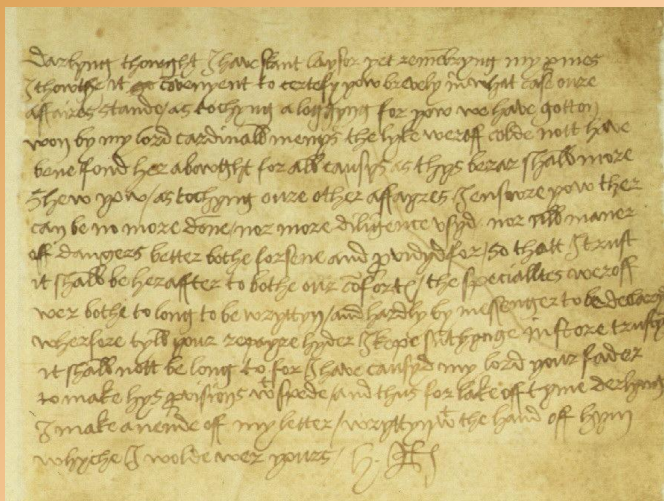 Darlyng thowght I have skant laysor yet remembryng my promes
I thowthe it co͞venyent to certefy yow brevely in what case oure
affaires stande / as tochyng a loggyng for yow we have gotton
won by my lord cardinalls menys the lyke weroff colde nott have
bene fond her abowght for all causys as thys berar shall more
shew yow / as tochyng oure other affayres I ensure yow ther
can be no more done / nor more diligence usyd nor all maner
off dangers better bothe forsene and p͞vydyd for / so thatt I trust
it shall be heraffter to bothe our co͞fortes / the specialltes weroff
wer bothe to long to be wryttyn / and hardly by messenger to be declaryd
wherfore tyll your repayre hyder I kepe su͞thynge in store trustyng
it shall nott be long to for I have causyd my lord your fader
to make hys p͞visions wt spede / and thus for lake off tyme derlyng
I make an ende off my letter / wryttyn wt the hand off hym
whyche I wolde wer yours H. R